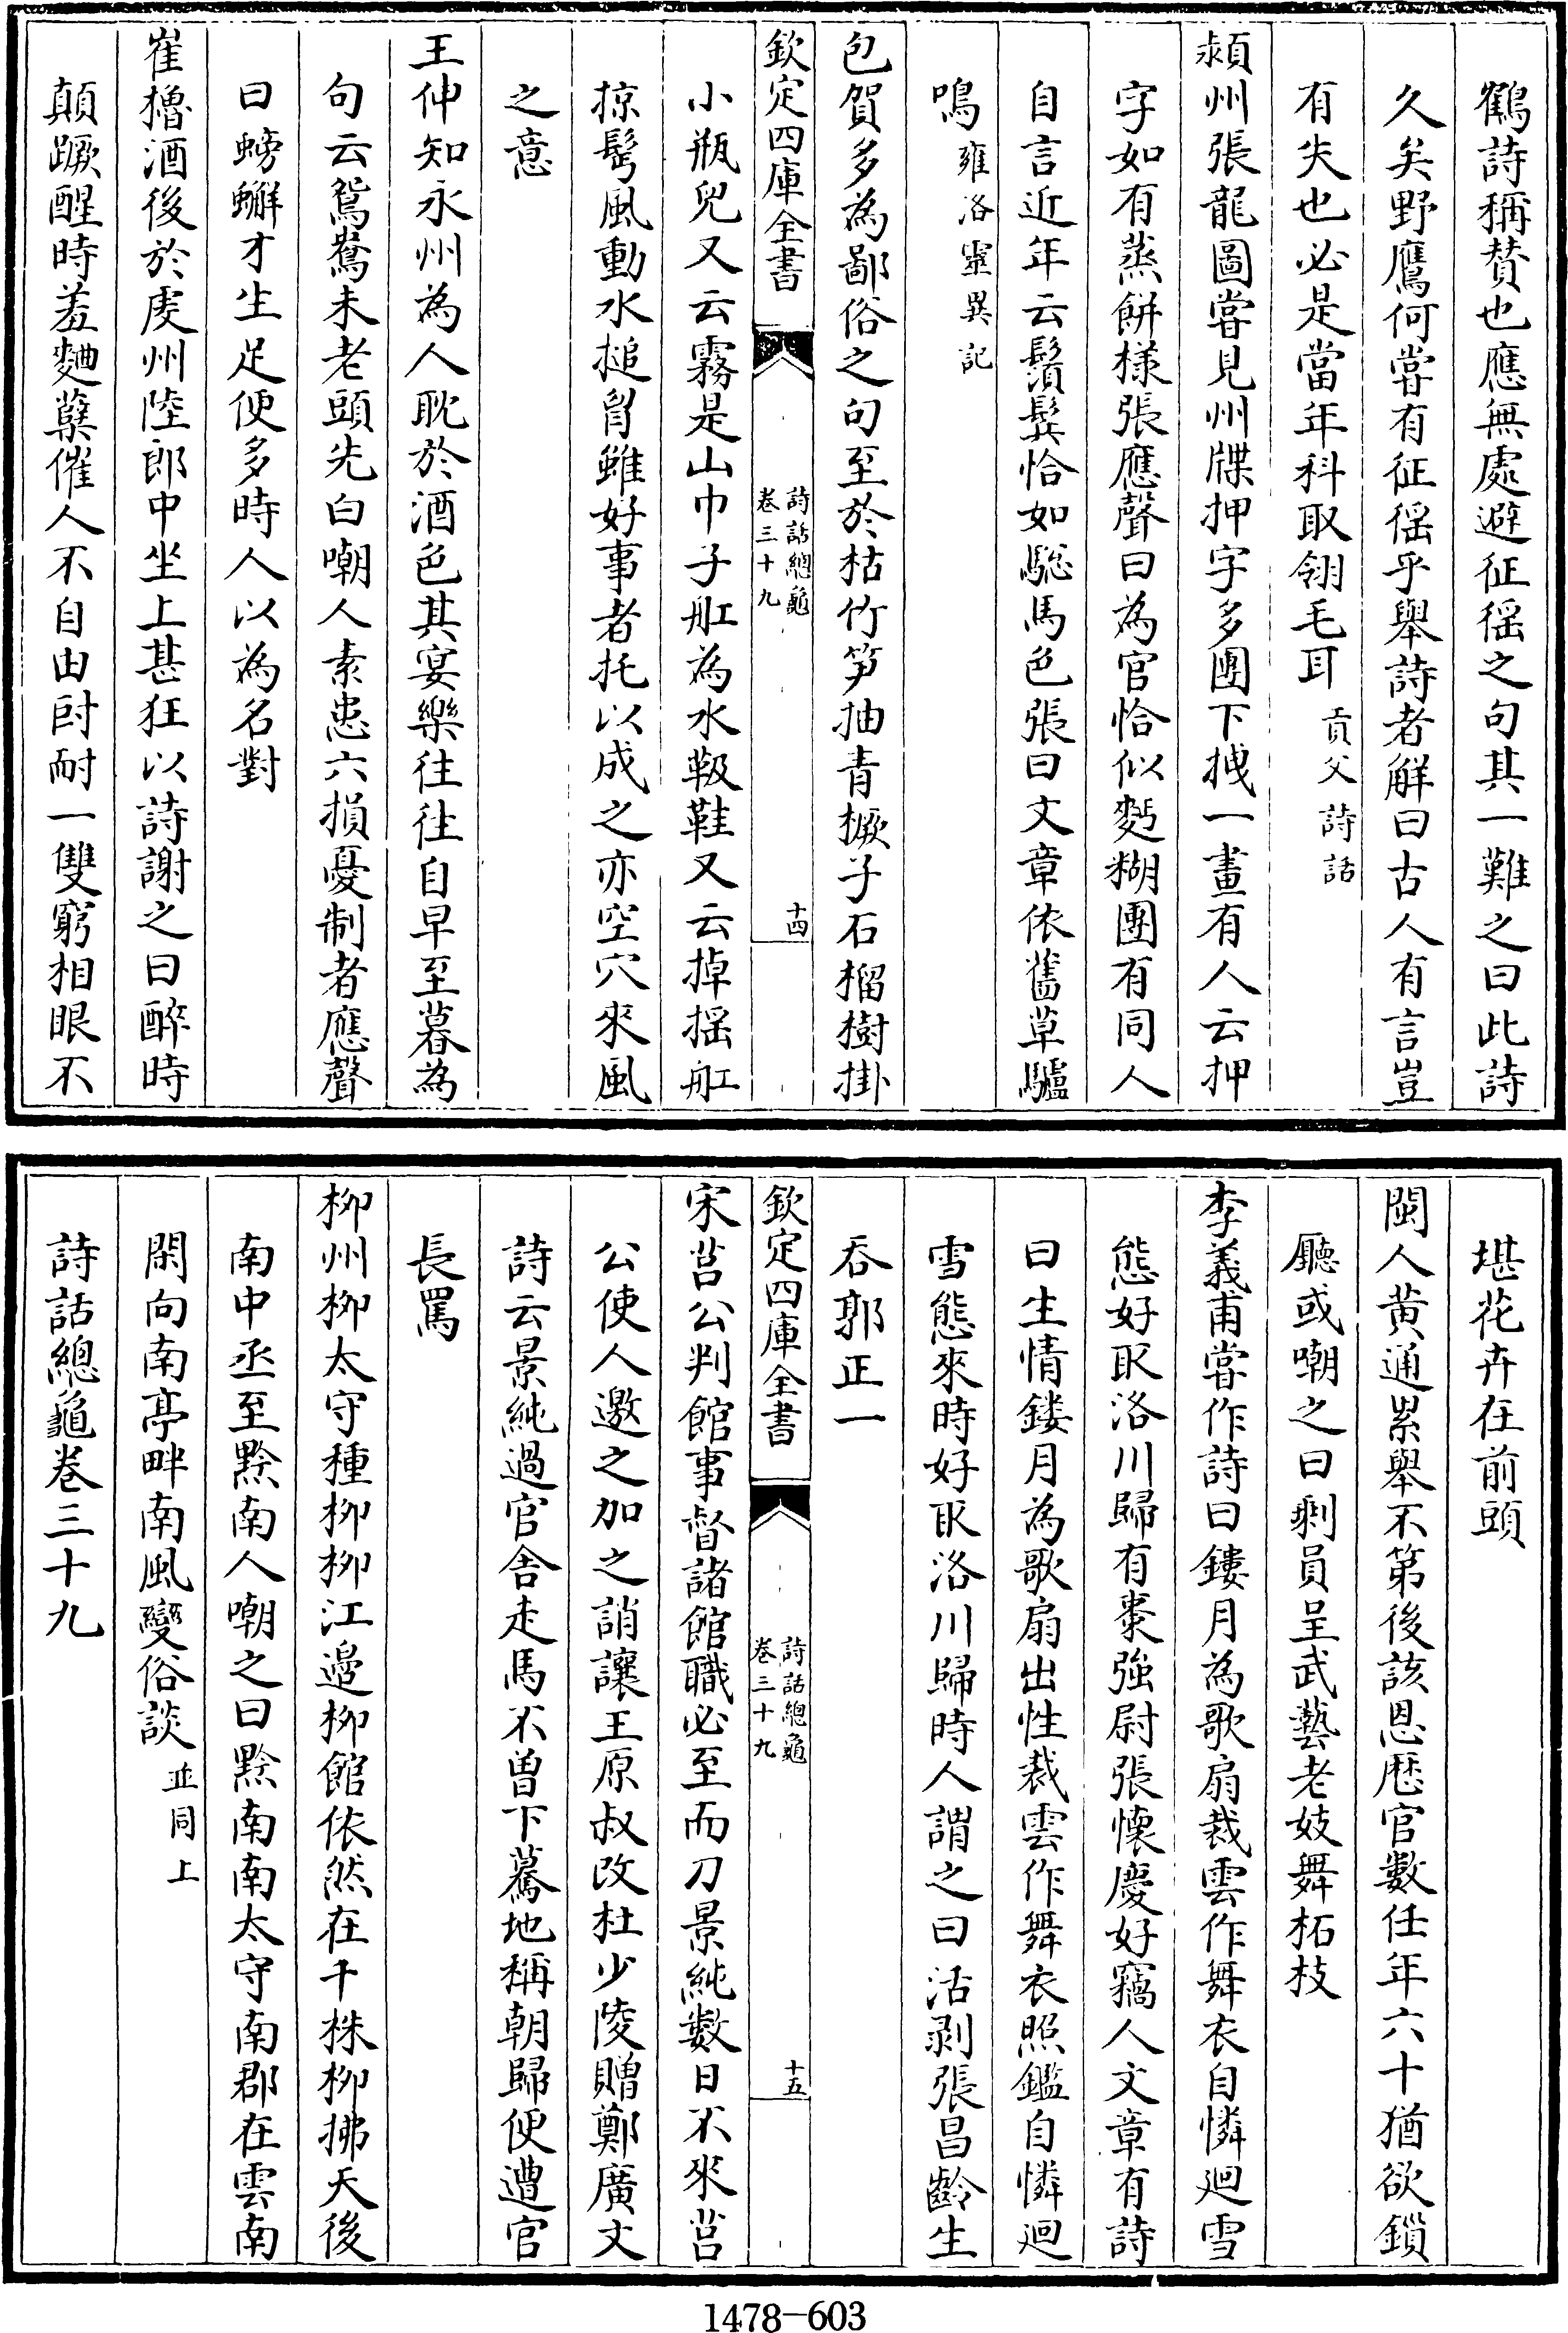 鶴詩稱賛也應無處避征徭之句其一難之曰此詩
久矣野鷹何嘗有征徭乎舉詩者解曰古人有言豈
有失也必是當年科取翎毛耳貢父詩話
潁州張龍圖嘗見州牒押字多團下拽一畫有人云押
字如有蒸餅樣張應聲曰為官恰似麫糊團有同人
自言近年云鬚髮恰如驄馬色張曰文章依舊草驢
鳴雍洛靈異記
包賀多為鄙俗之句至於枯竹笋抽青橛子石榴樹掛
欽定四庫全書
詩話總龜
卷三十九
十四
小瓶兒又云霧是山巾子舡為水靸鞋又云掉搖舡
掠鬂風動水搥胷雖好事者托以成之亦空穴來風
之意
王仲知永州為人耽於酒色其宴樂往往自早至暮為
句云鴛鴦未老頭先白嘲人素患六損憂制者應聲
曰螃蠏才生足便多時人以為名對
崔櫓酒後於虔州陸郎中坐上甚狂以詩謝之曰醉時
顛蹶醒時羞麯糵催人不自由叵耐一雙窮相眼不
堪花卉在前頭
閩人黄通累舉不第後該恩歷官數任年六十猶欲鎖
廳或嘲之曰剩員呈武藝老妓舞柘枝
李義甫嘗作詩曰鏤月為歌扇裁雲作舞衣自憐迴雪
態好取洛川歸有棗強尉張懷慶好竊人文章有詩
曰生情鏤月為歌扇出性裁雲作舞衣照鑑自憐迴
雪態來時好取洛川歸時人謂之曰活剥張昌齡生
吞郭正一
欽定四庫全書
詩話總龜
卷三十九
十五
宋莒公判館事督諸館職必至而刀景純數日不來莒
公使人邀之加之誚讓王原叔改杜少陵贈鄭廣文
詩云景純過官舍走馬不曽下驀地稱朝歸便遭官
長罵
栁州栁太守種栁栁江邉栁館依然在千株栁拂天後
南中丞至黙南人嘲之曰黙南南太守南郡在雲南
閑向南亭畔南風變俗談並同上
詩話總龜卷三十九
1478-603